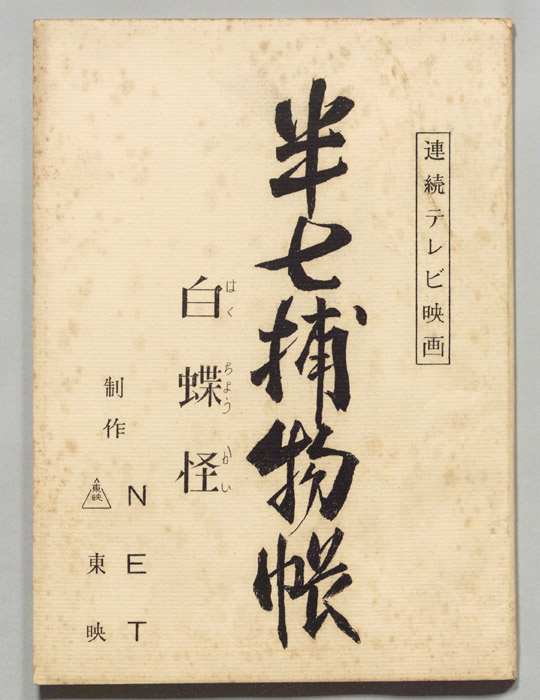 連続テレビ映画
半七捕物帳
白蝶怪
はく
ちょう
かい
制作
NET
東映
東映